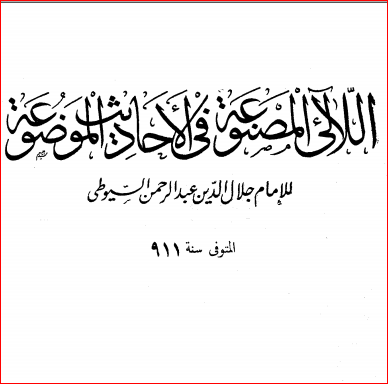 اللآلئ المصنوعة في الأحاديث الموضوعة
للإمام جلال الدين عبد الرحمن السيوطى
المتوفى سنة ٩١١